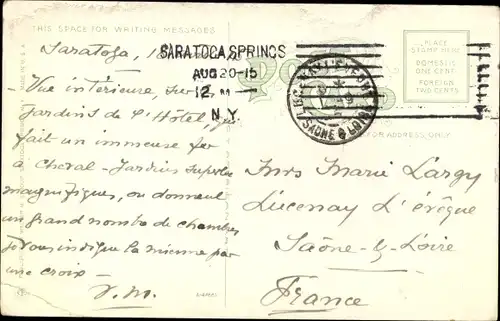 THIS SPACE FOR WRITING MESSAGES
PLACE
STAMP HERE
DOMESTIC
ONE CENT
FOREIGN
TWO CENTS
SARATOGA SPRINGS
AUG 20-15
12 M
N.Y.
SAONE & LOIRE
FOR ADDRESS ONLY
Saratoga,
Vue intérieure sur
Jardins de l'Hôtel,
fait un immense fer
à Cheval - Jardins superbes
magnifiques, où donnent
un grand nombre de chambres
je vous indique la mienne par
une croix -
V.M.
Mrs Marie Largy
Lucenay L'évêque
Saône-&-Loire
France